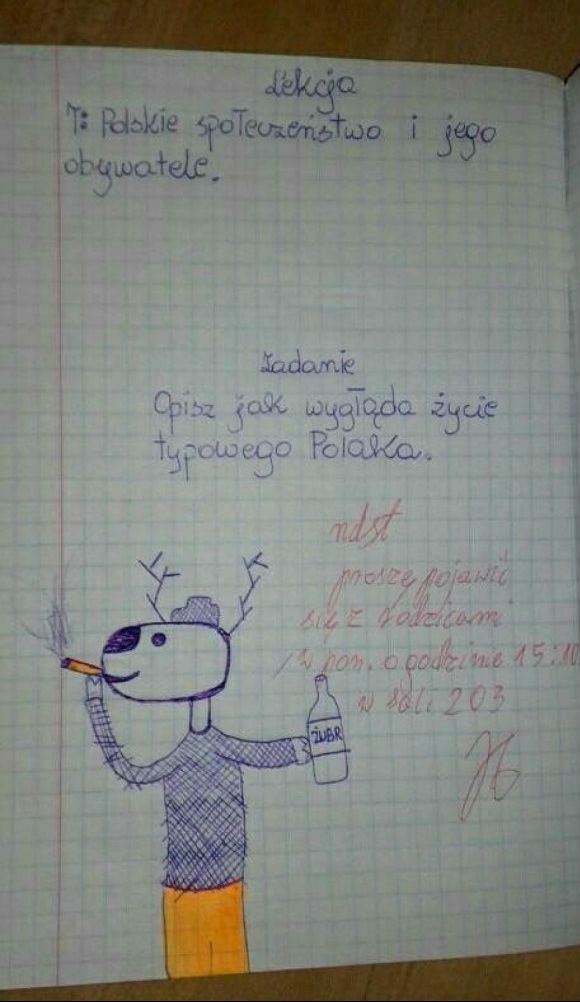 Lekcja
T: Polskie społeczeństwo i jego
obywatele.
Zadanie
Opisz jak wygłąda życie
typowego Polaka.
ndst
proszę pojawić
się z rodzicami
w pon. o godzinie 15:10
w sali 203
ŻUBR